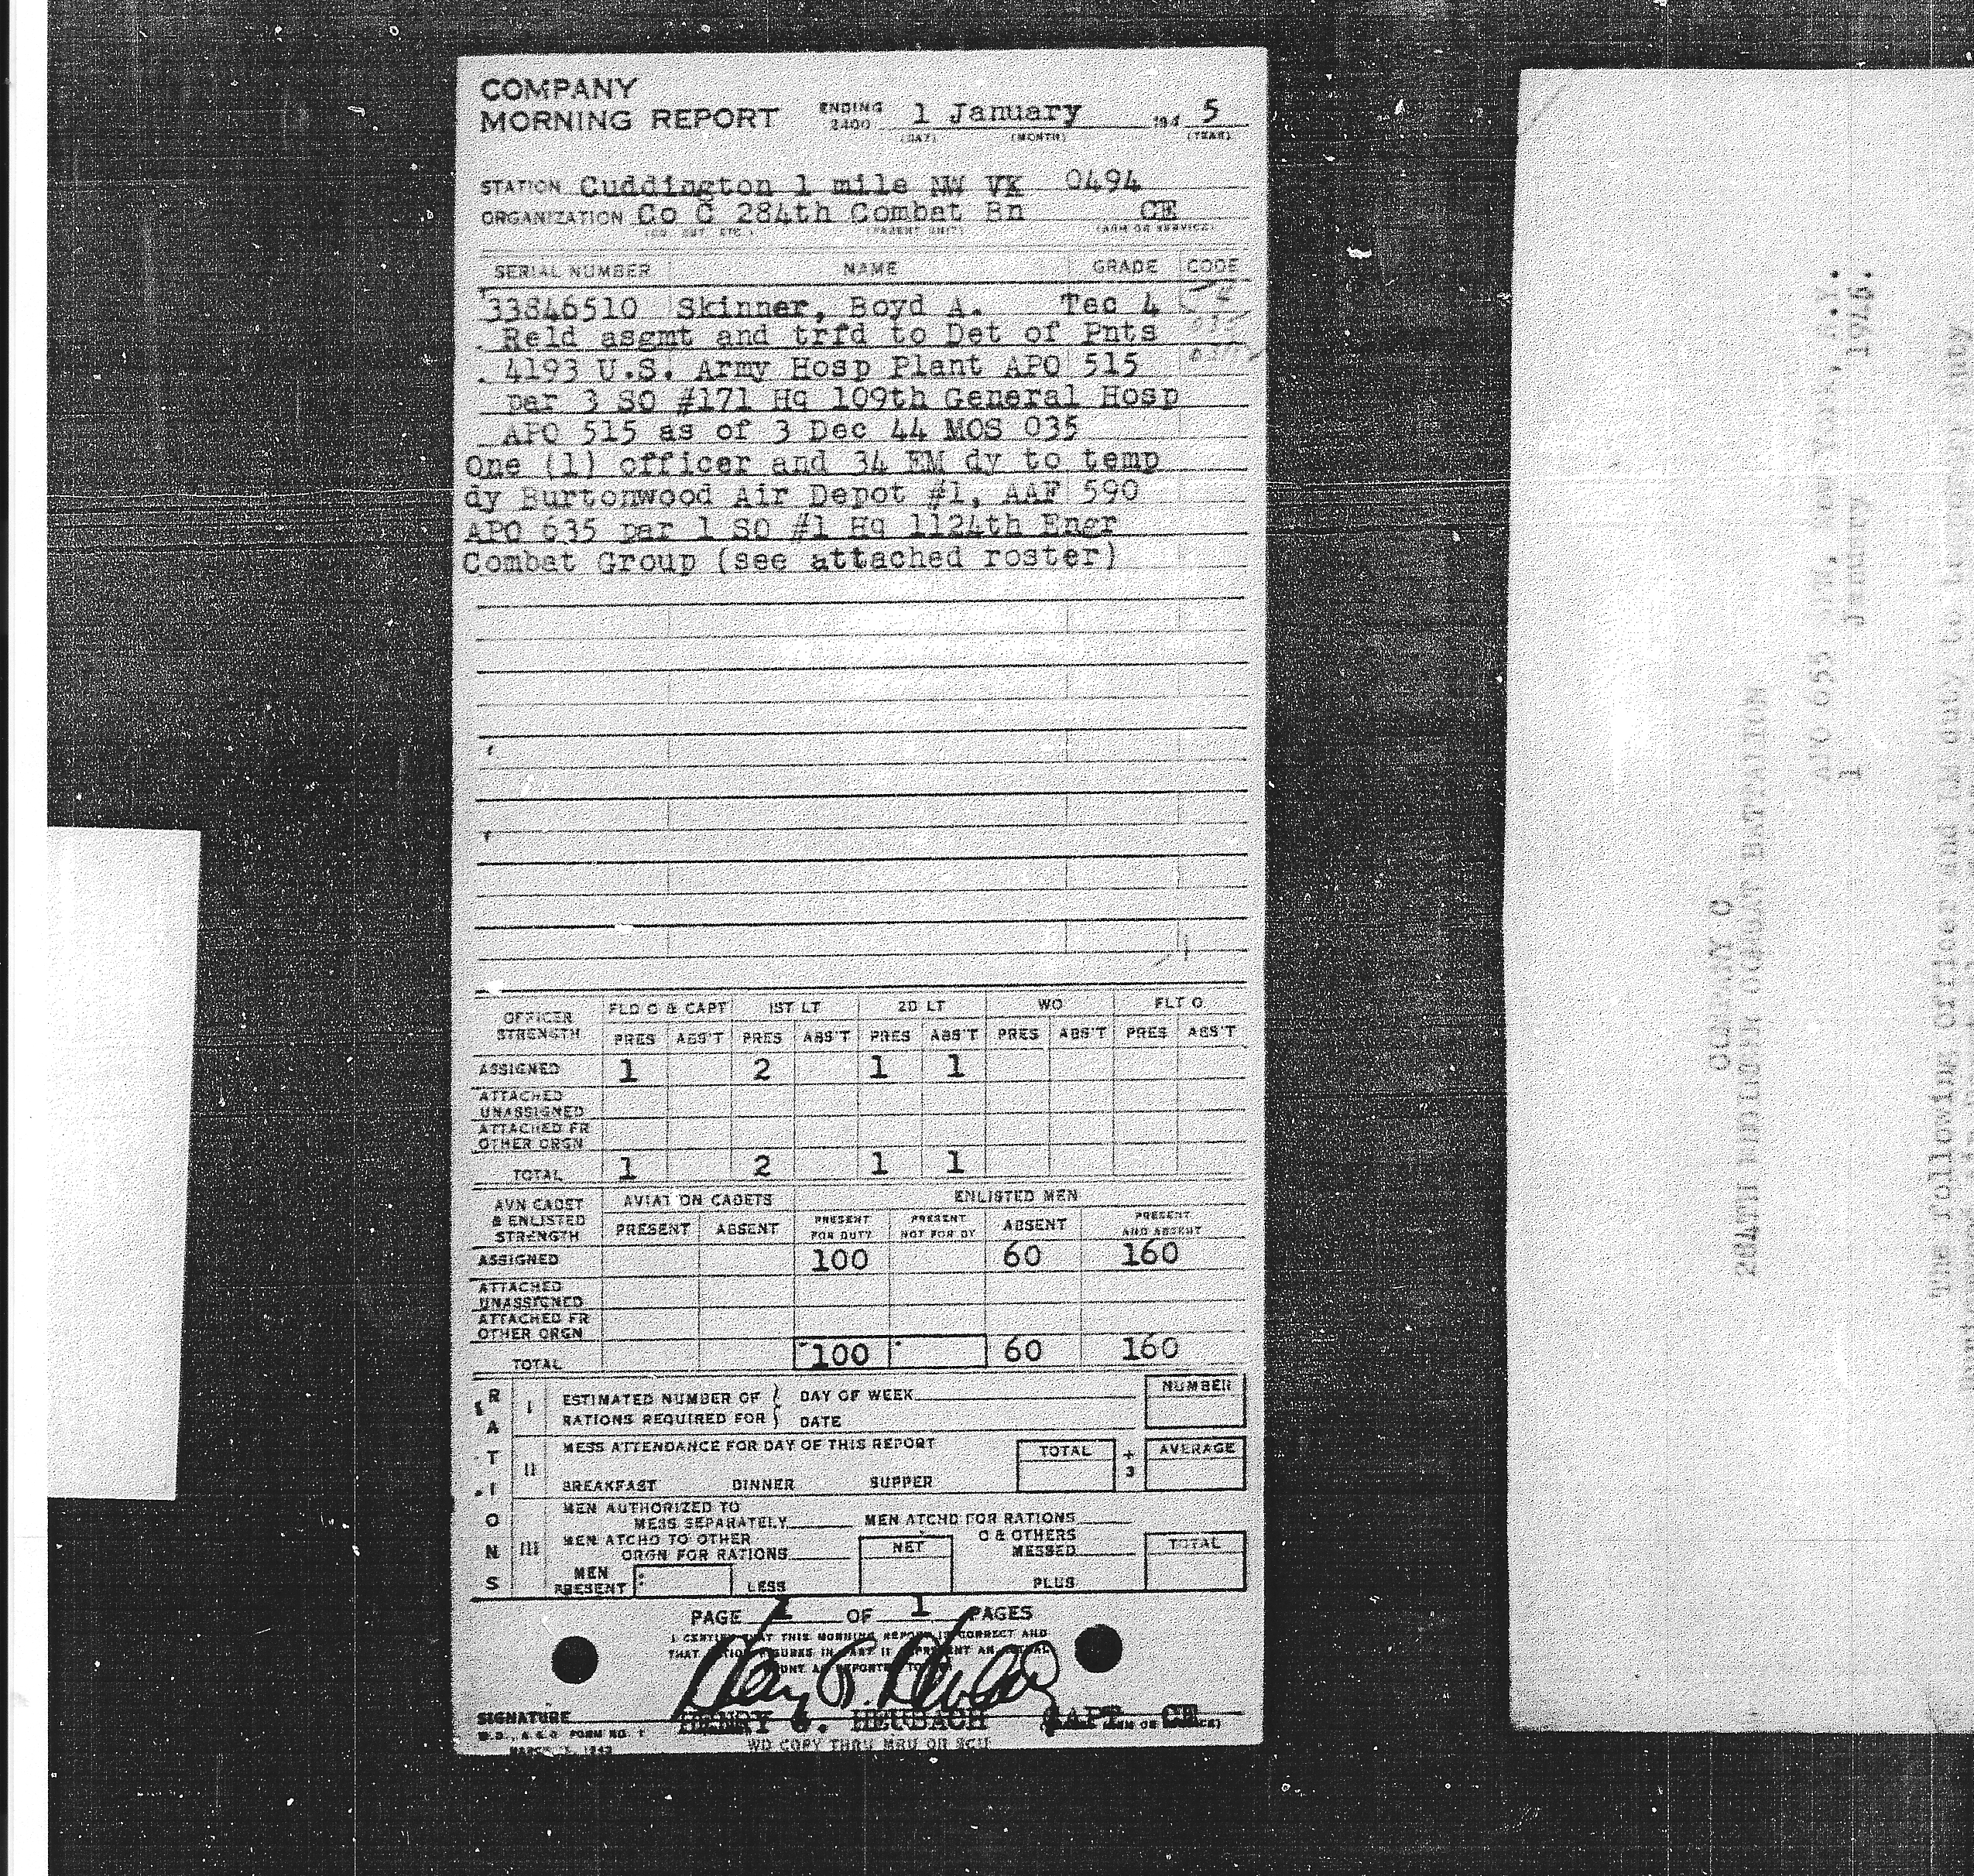 COMPANY
MORNING REPORT ENDING 2400 1 January 194 5
(DAY) (MONTH) (YEAR)
STATION Cuddington 1 mile NW VK 0494
ORGANIZATION Co C 284th Combat Bn CE
(PARENT UNIT) (ARM OR SERVICE)
SERIAL NUMBER NAME GRADE CODE
33846510 Skinner, Boyd A. Tec 4
Reld asgmt and trfd to Det of Pnts
4193 U.S. Army Hosp Plant APO 515
par 3 SO #171 Hq 109th General Hosp
APO 515 as of 3 Dec 44 MOS 035
One (1) officer and 34 EM dy to temp
dy Burtonwood Air Depot #1, AAF 590
APO 635 par 1 SO #1 Hq 1124th Engr
Combat Group (see attached roster)
OFFICER STRENGTH FLD O & CAPT 1ST LT 2D LT WO FLT O
PRES ABS'T PRES ABS'T PRES ABS'T PRES ABS'T PRES ABS'T
ASSIGNED 1 2 1 1
ATTACHED UNASSIGNED
ATTACHED FR OTHER ORGN
TOTAL 1 2 1 1
AVN CADET & ENLISTED STRENGTH AVIATION CADETS ENLISTED MEN
PRESENT ABSENT PRESENT FOR DUTY PRESENT NOT FOR DY ABSENT PRESENT AND ABSENT
ASSIGNED 100 60 160
ATTACHED UNASSIGNED
ATTACHED FR OTHER ORGN
TOTAL 100 60 160
RATIONS
I ESTIMATED NUMBER OF RATIONS REQUIRED FOR DAY OF WEEK NUMBER
DATE
II MESS ATTENDANCE FOR DAY OF THIS REPORT TOTAL ÷ 3 AVERAGE
BREAKFAST DINNER SUPPER
III MEN AUTHORIZED TO MESS SEPARATELY MEN ATCHD FOR RATIONS
MEN ATCHD TO OTHER ORGN FOR RATIONS NET O & OTHERS MESSED TOTAL
MEN PRESENT LESS PLUS
PAGE 1 OF 1 PAGES
I CERTIFY THAT THIS MORNING REPORT IS CORRECT AND
SIGNATURE HENRY G. HEUBACH CAPT CE
W.D., A.G.O. FORM NO. 1
WD COPY THRU MRU OR SCU
COMPANY C
284TH ENGINEER COMBAT BATTALION
1 January
The following Officer and EM duty to